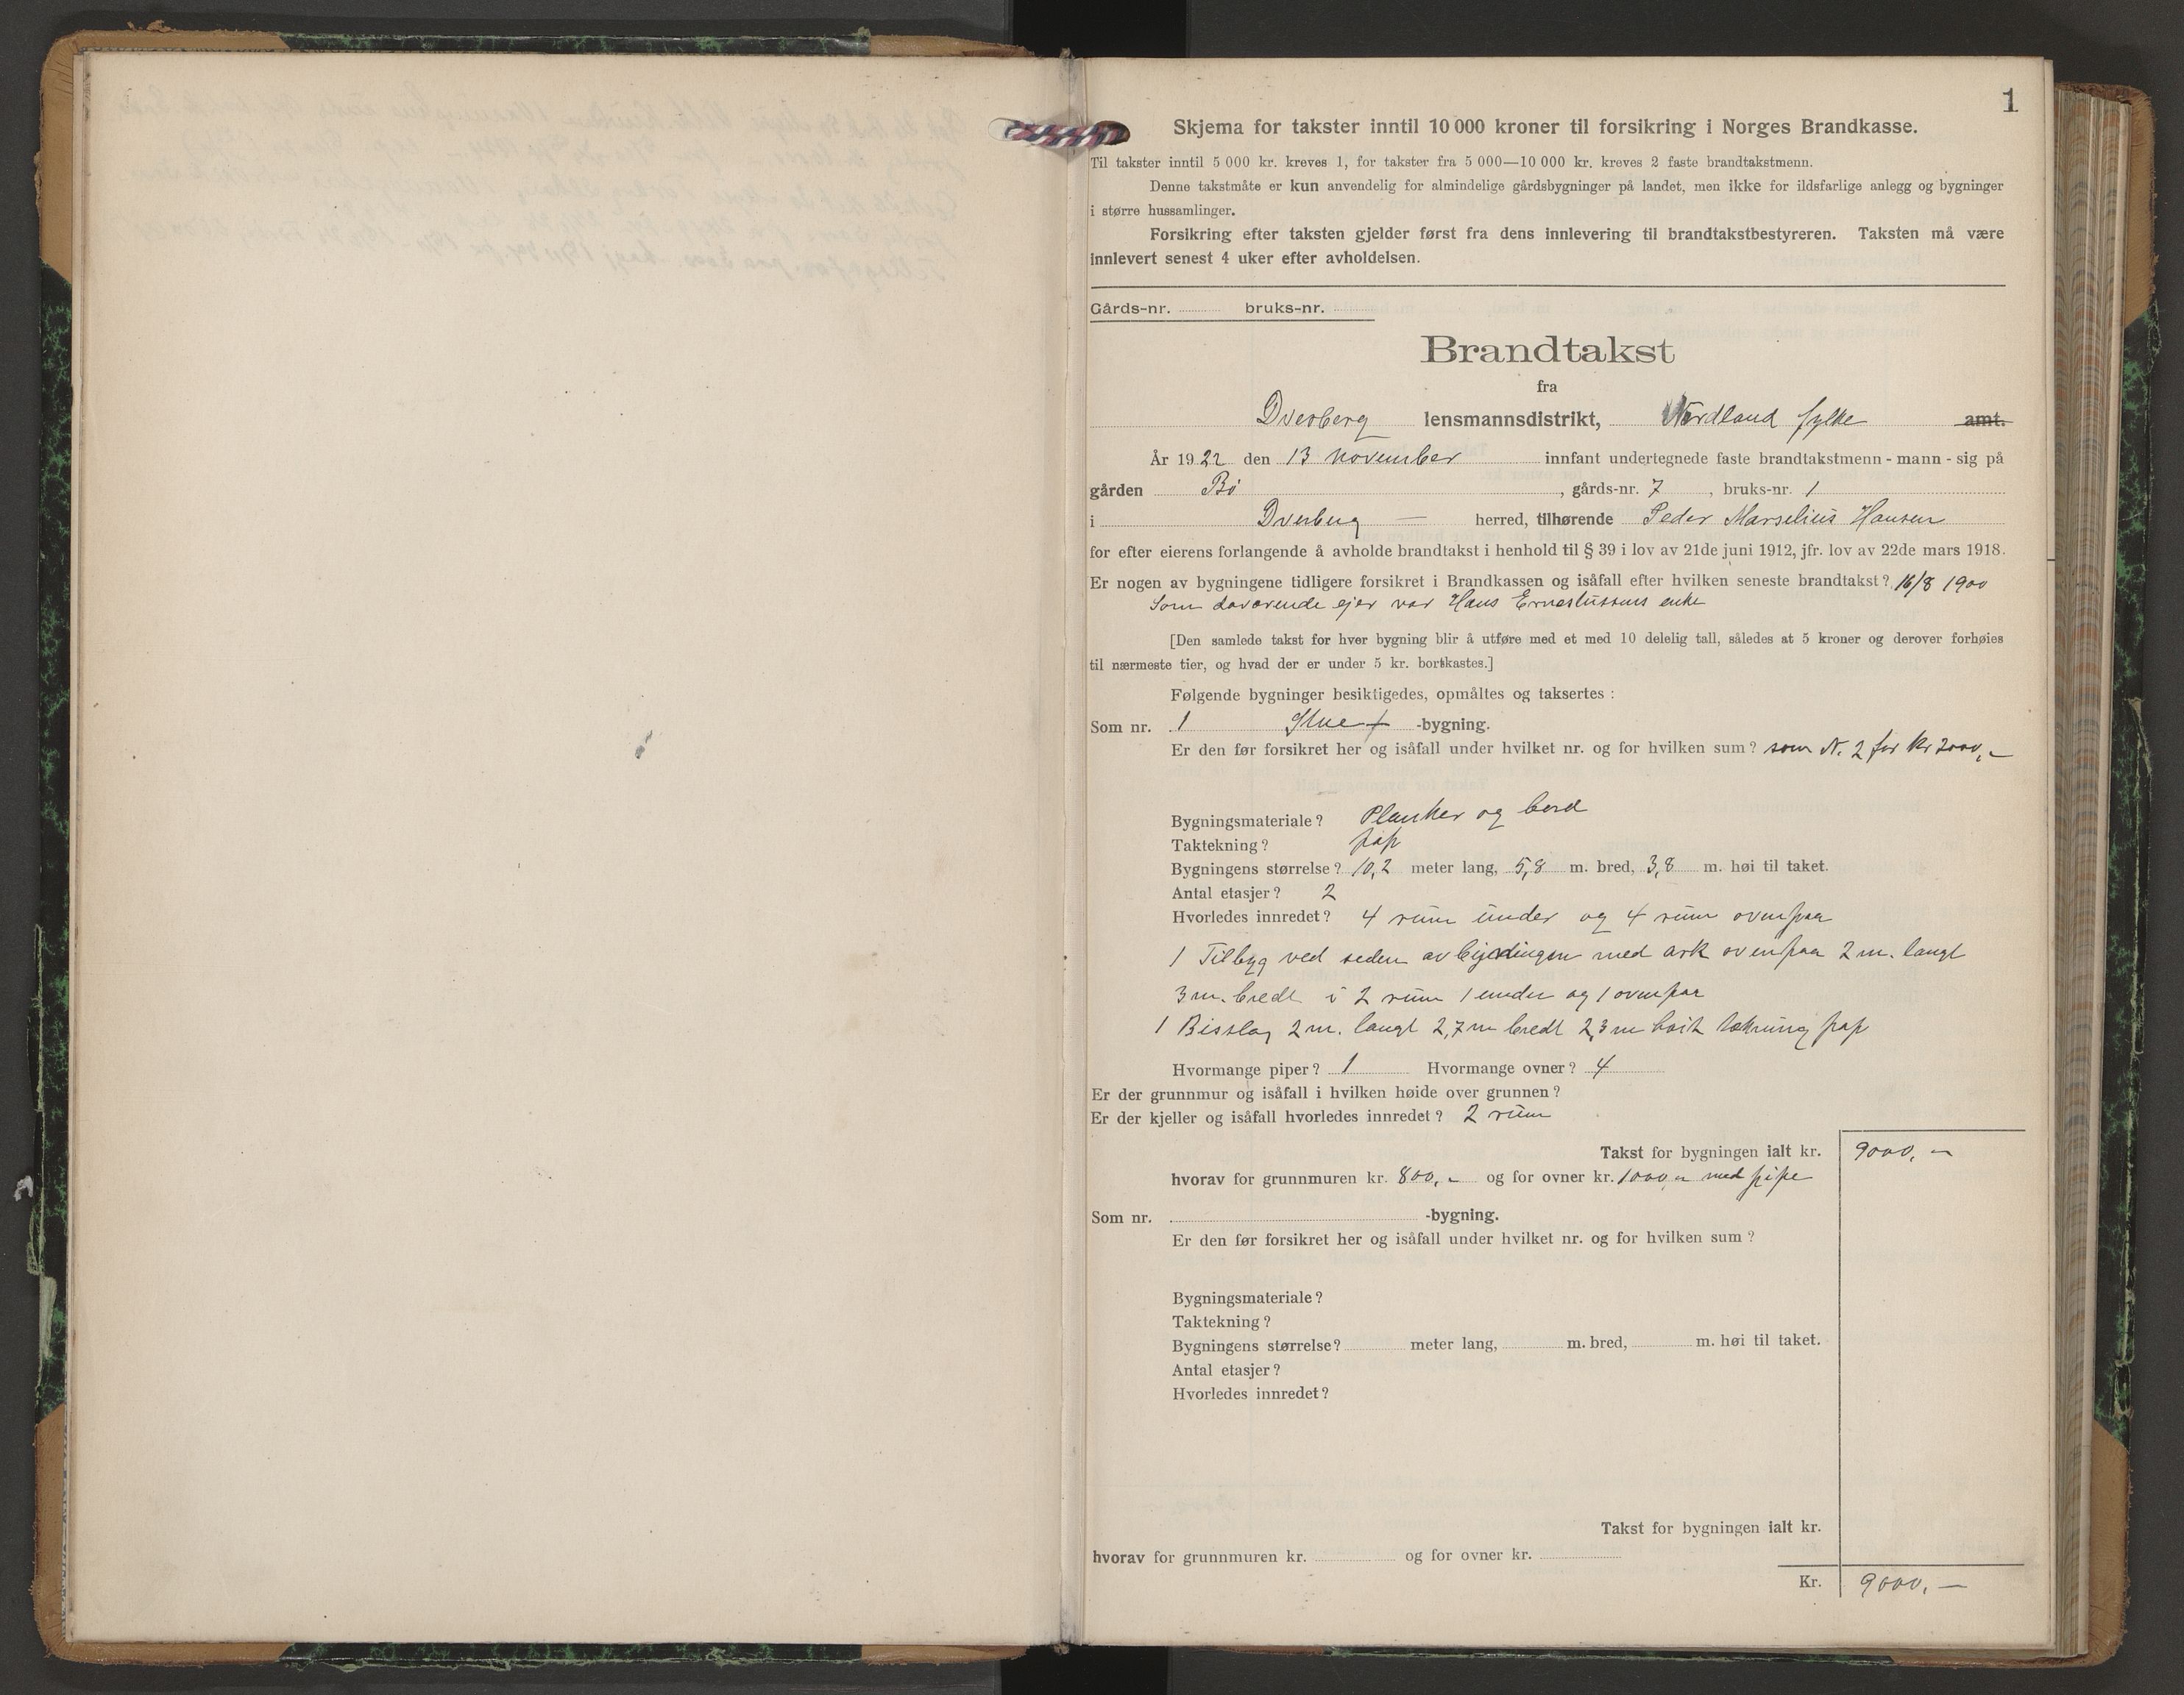 1
Skjema for takster inntil 10 000 kroner til forsikring i Norges Brandkasse.
Til takster inntil 5 000 kr. kreves 1, for takster fra 5 000—10 000 kr. kreves 2 faste brandtakstmenn.
Denne takstmåte er kun anvendelig for almindelige gårdsbygninger på landet, men ikke for ildsfarlige anlegg og bygninger
i større hussamlinger.
Forsikring efter taksten gjelder først fra dens innlevering til brandtakstbestyreren. Taksten må være
innlevert senest 4 uker efter avholdelsen.
Gårds-nr. bruks-nr.
Brandtakst
fra
Dverberg lensmannsdistrikt, Nordland fylke amt.
År 1922 den 13 november innfant undertegnede faste brandtakstmenn - mann - sig på
gården Bö, gårds-nr. 7, bruks-nr. 1
i Dverberg — herred, tilhørende Peder Marselius Hansen
for efter eierens forlangende å avholde brandtakst i henhold til § 39 i lov av 21de juni 1912, jfr. lov av 22de mars 1918.
Er nogen av bygningene tidligere forsikret i Brandkassen og isåfall efter hvilken seneste brandtakst? 16/8 1900
Som davørende ejer var Hans Ernestussens enke
[Den samlede takst for hver bygning blir å utføre med et med 10 delelig tall, således at 5 kroner og derover forhøies
til nærmeste tier, og hvad der er under 5 kr. bortkastes.]
Følgende bygninger besiktigedes, opmåltes og taksertes :
Som nr. 1 Stue -bygning.
Er den før forsikret her og isåfall under hvilket nr. og for hvilken sum? som N. 2 for Kr 2000,-
Bygningsmateriale? Planker og bord
Taktekning? pap
Bygningens størrelse? 10,2 meter lang, 5,8 m. bred, 3,8 m. høi til taket.
Antal etasjer? 2
Hvorledes innredet? 4 rum under og 4 rum ovenpaa
1 Tilbyg ved seden av bygningen med ark ovenpaa 2 m. langt
3 m. bredt i 2 rum 1 under og 1 ovenpaa
1 Bislag 2 m. langt 2,7 m bredt 2,3 m høit tækning pap
Hvormange piper? 1 Hvormange ovner? 4
Er der grunnmur og isåfall i hvilken høide over grunnen?
Er der kjeller og isåfall hvorledes innredet? 2 rum
Takst for bygningen ialt kr. 9000,-
hvorav for grunnmuren kr. 800,- og for ovner kr. 1000,- med pipe
Som nr. -bygning.
Er den før forsikret her og isåfall under hvilket nr. og for hvilken sum?
Bygningsmateriale?
Taktekning?
Bygningens størrelse? meter lang, m. bred, m. høi til taket.
Antal etasjer?
Hvorledes innredet?
Takst for bygningen ialt kr.
hvorav for grunnmuren kr. og for ovner kr.
Kr. 9000,—